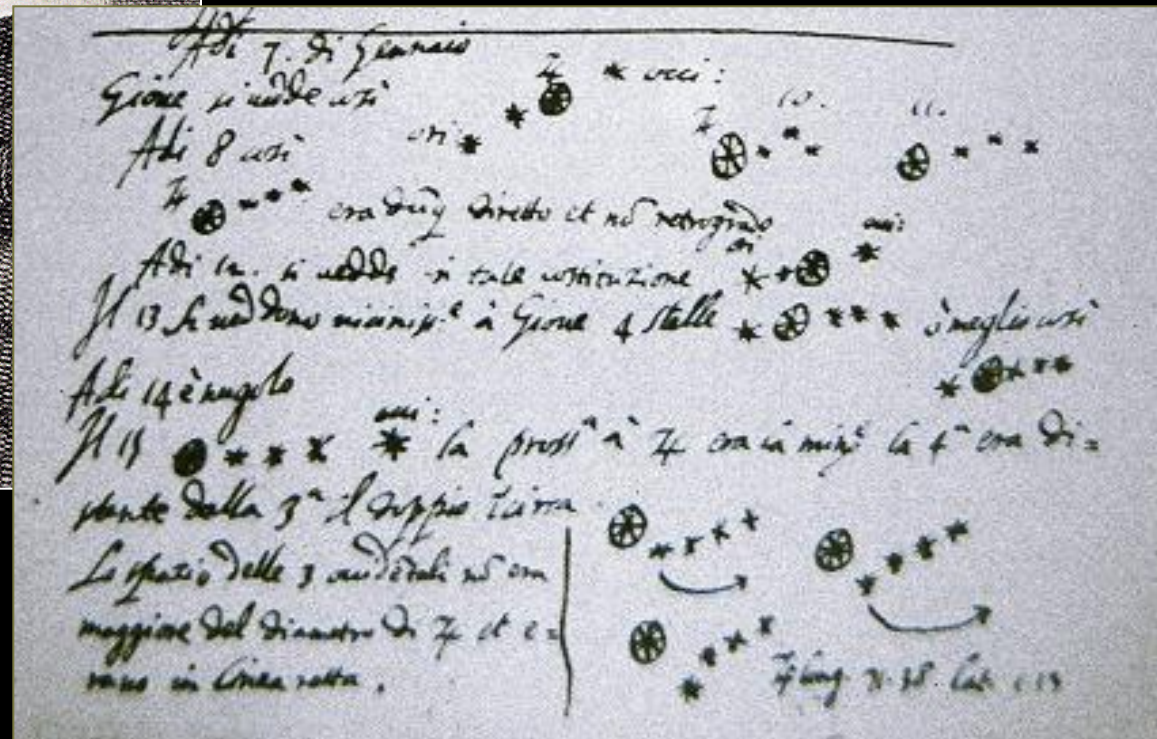 Adi 7. di Gennaio
Gioue si uede così ♃ occi:
Adi 8 così ori ♃ 10. 11.
♃ era dūq diretto et nō retrogrado
Adi 12. si uedde in tale costituzione ori occi:
Il 13 si ueddono uiciniss.e à Gioue 4 stelle ò meglio così
Adi 14 è nugolo
Il 15 occi: la pross.a à ♃ era la min.e la 4.a era di=
stante dalla 3.a il doppio circa
Lo spatio delle 3 occidētali nō era
maggiore del diametro di ♃ et e=
rano in linea retta.
♃ long. 71.38 lat. 1.13